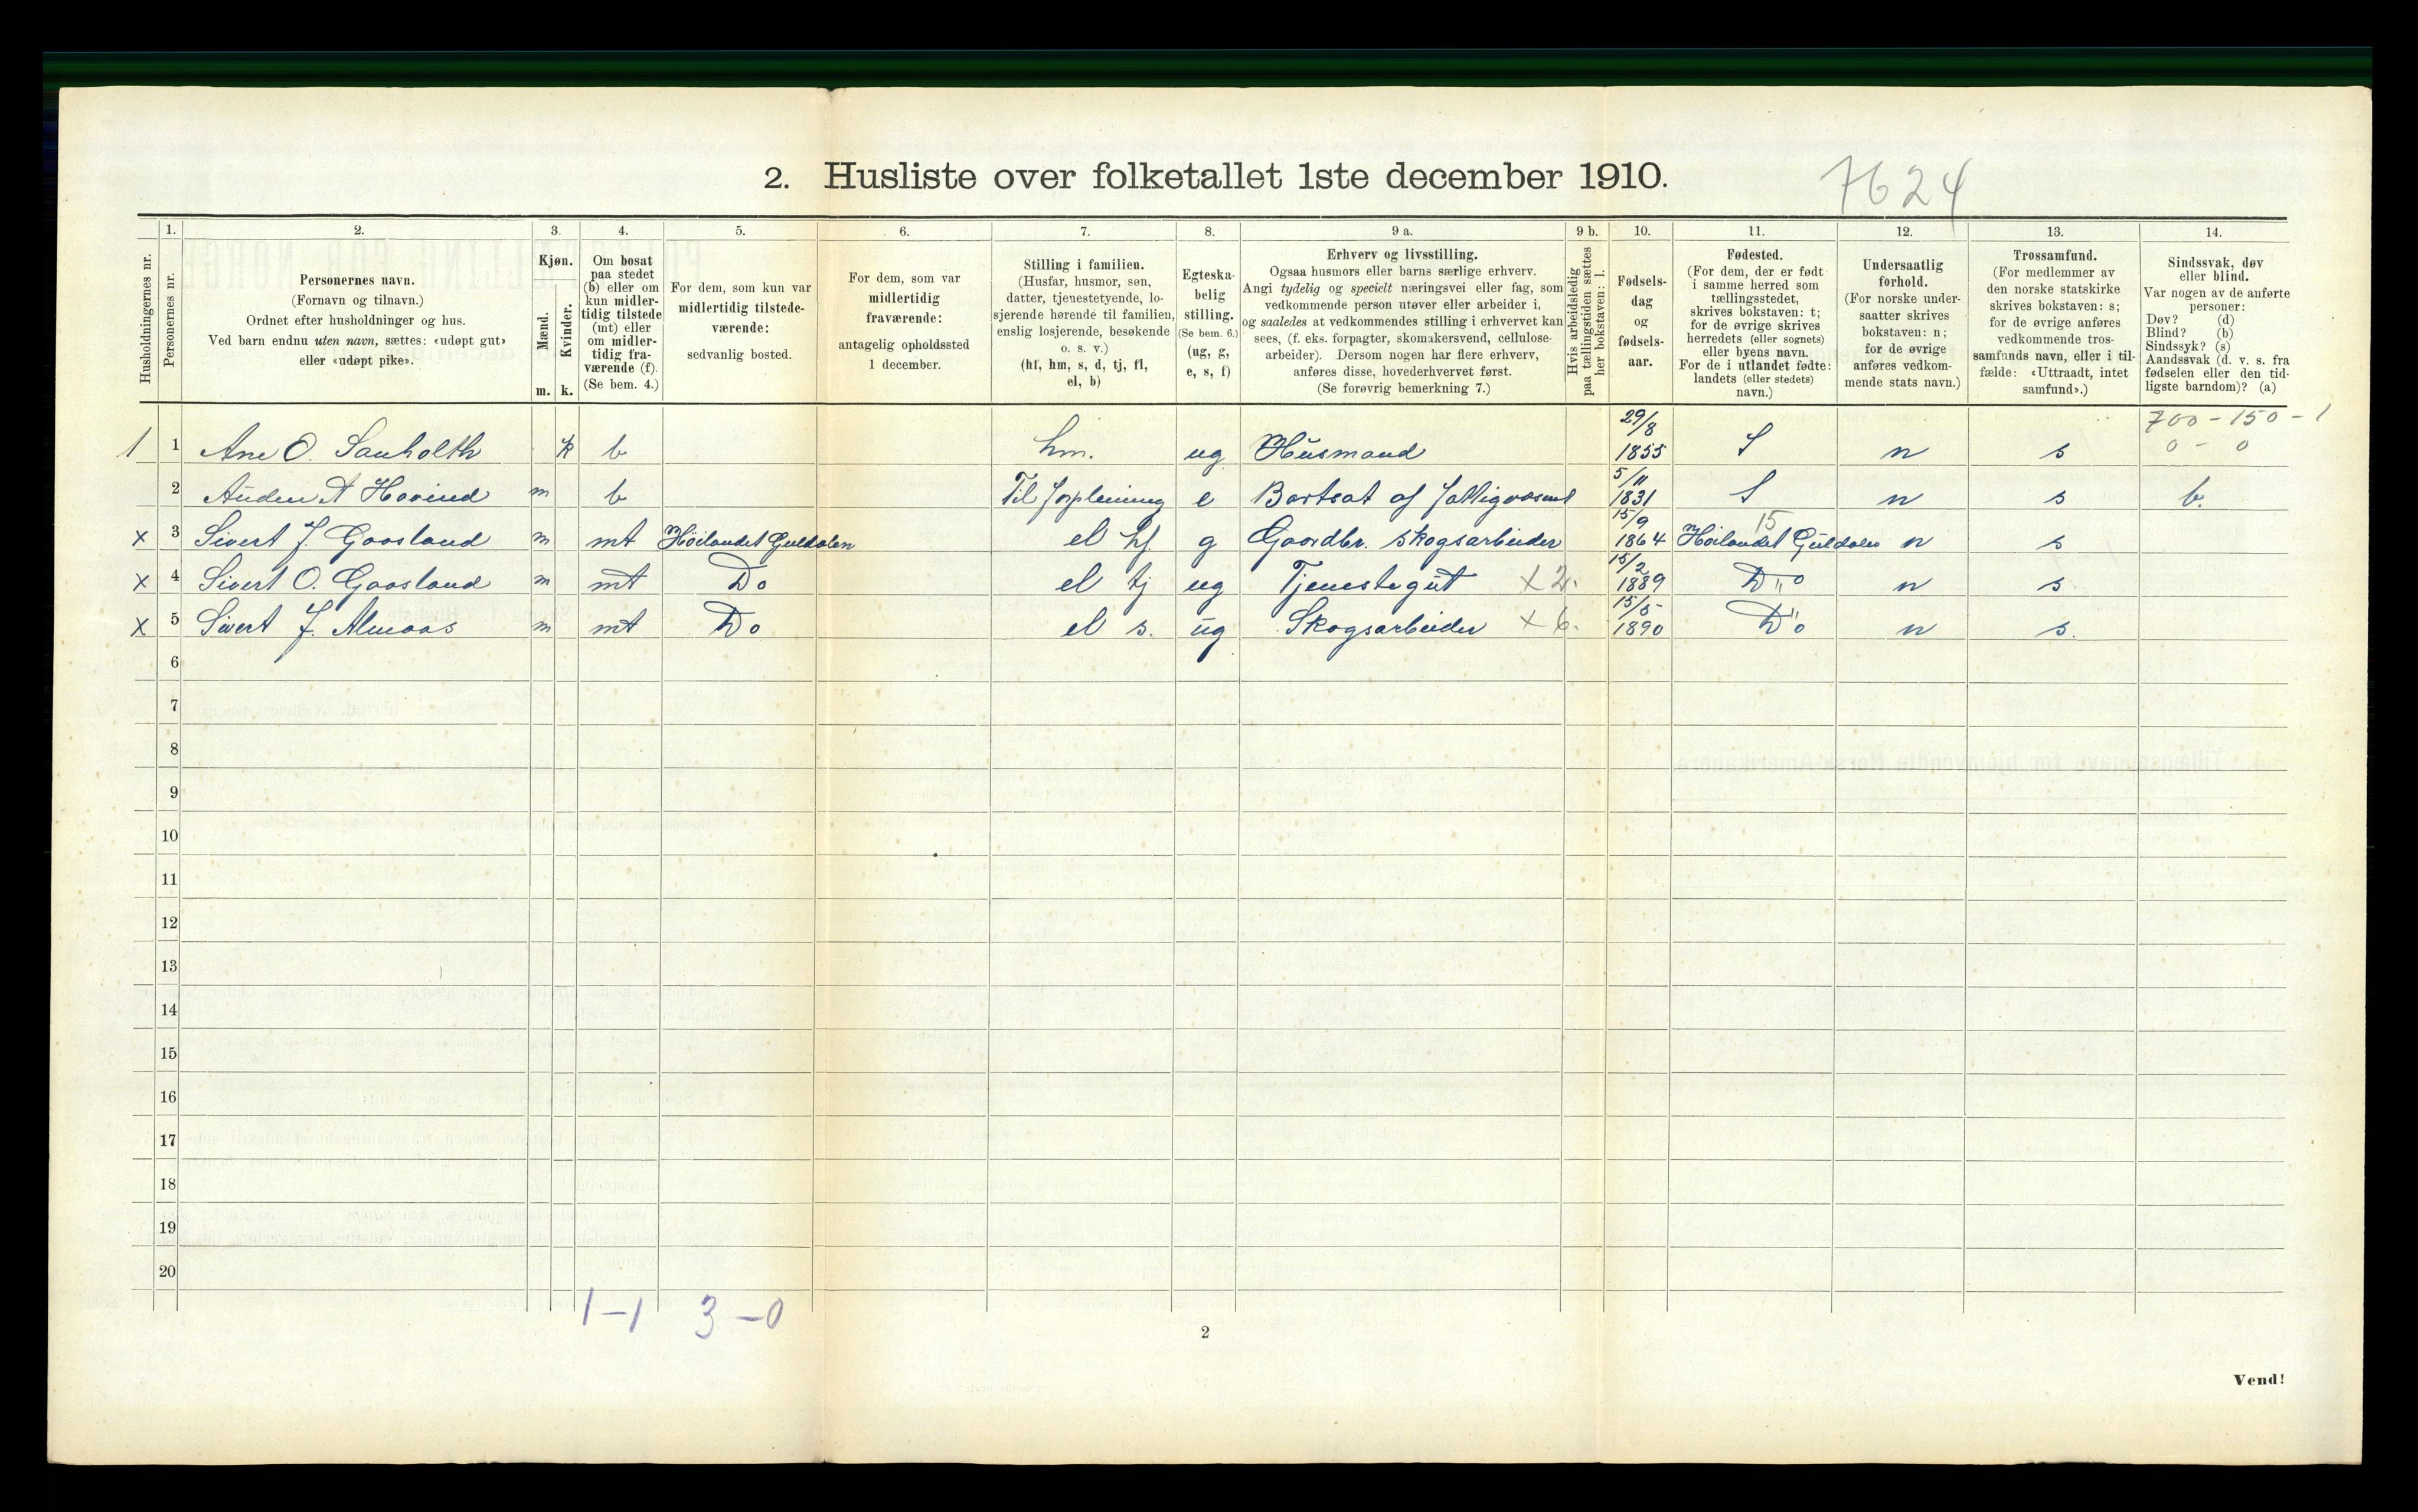 2. Husliste over folketallet 1ste december 1910.
7624
Husholdningernes nr.
1.
Personernes nr.
2.
Personernes navn.
(Fornavn og tilnavn.)
Ordnet efter husholdninger og hus.
Ved barn endnu uten navn, sættes: «udøpt gut»
eller «udøpt pike».
3.
Kjøn.
Mænd.
Kvinder.
m. k.
4.
Om bosat
paa stedet
(b) eller om
kun midler-
tidig tilstede
(mt) eller
om midler-
tidig fra-
værende (f).
(Se bem. 4.)
5.
For dem, som kun var
midlertidig tilstede-
værende:
sedvanlig bosted.
6.
For dem, som var
midlertidig
fraværende:
antagelig opholdssted
1 december.
7.
Stilling i familien.
(Husfar, husmor, søn,
datter, tjenestetyende, lo-
sjerende hørende til familien,
enslig losjerende, besøkende
o. s. v.)
(hf, hm, s, d, tj, fl,
el, b)
8.
Egteska-
belig
stilling.
(Se bem. 6.)
(ug, g,
e, s, f)
9 a.
Erhverv og livsstilling.
Ogsaa husmors eller barns særlige erhverv.
Angi tydelig og specielt næringsvei eller fag, som
vedkommende person utøver eller arbeider i,
og saaledes at vedkommendes stilling i erhvervet kan
sees, (f. eks. forpagter, skomakersvend, cellulose-
arbeider). Dersom nogen har flere erhverv,
anføres disse, hovederhvervet først.
(Se forøvrig bemerkning 7.)
9 b.
Hvis arbeidsledig
paa tællingstiden sættes
her bokstaven: l.
10.
Fødsels-
dag
og
fødsels-
aar.
11.
Fødested.
(For dem, der er født
i samme herred som
tællingsstedet,
skrives bokstaven: t;
for de øvrige skrives
herredets (eller sognets)
eller byens navn.
For de i utlandet fødte:
landets (eller stedets)
navn.)
12.
Undersaatlig
forhold.
(For norske under-
saatter skrives
bokstaven: n;
for de øvrige
anføres vedkom-
mende stats navn.)
13.
Trossamfund.
(For medlemmer av
den norske statskirke
skrives bokstaven: s;
for de øvrige anføres
vedkommende tros-
samfunds navn, eller i til-
fælde: «Uttraadt, intet
samfund».)
14.
Sindssvak, døv
eller blind.
Var nogen av de anførte
personer:
Døv? (d)
Blind? (b)
Sindssyk? (s)
Aandssvak (d. v. s. fra
fødselen eller den tid-
ligste barndom)? (a)
700 - 150 - 1
0 - 0
1 1 Ane O. Sanholth k b hm. ug Husmand 29/8 1855 n s
2 Auden A Hovind m b Til forpleining e Bortsat af fattigvæsent 5/11 1831 n s b.
x 3 Sivert J. Gaasland m mt Höilandet Guldalen el hf. g Gaardbr. Skogsarbeider 15/9 1864 15 Höilandet Guldalen n s
x 4 Sivert O. Gaasland m mt Do el tj ug Tjenestegut x 2. 15/2 1889 D"o n s
x 5 Sivert J. Almaas m mt Do el s. ug Skogsarbeider x 6. 15/5 1890 D"o n s.
6
7
8
9
10
11
12
13
14
15
16
17
18
19
20
1-1 3-0
2
Vend!